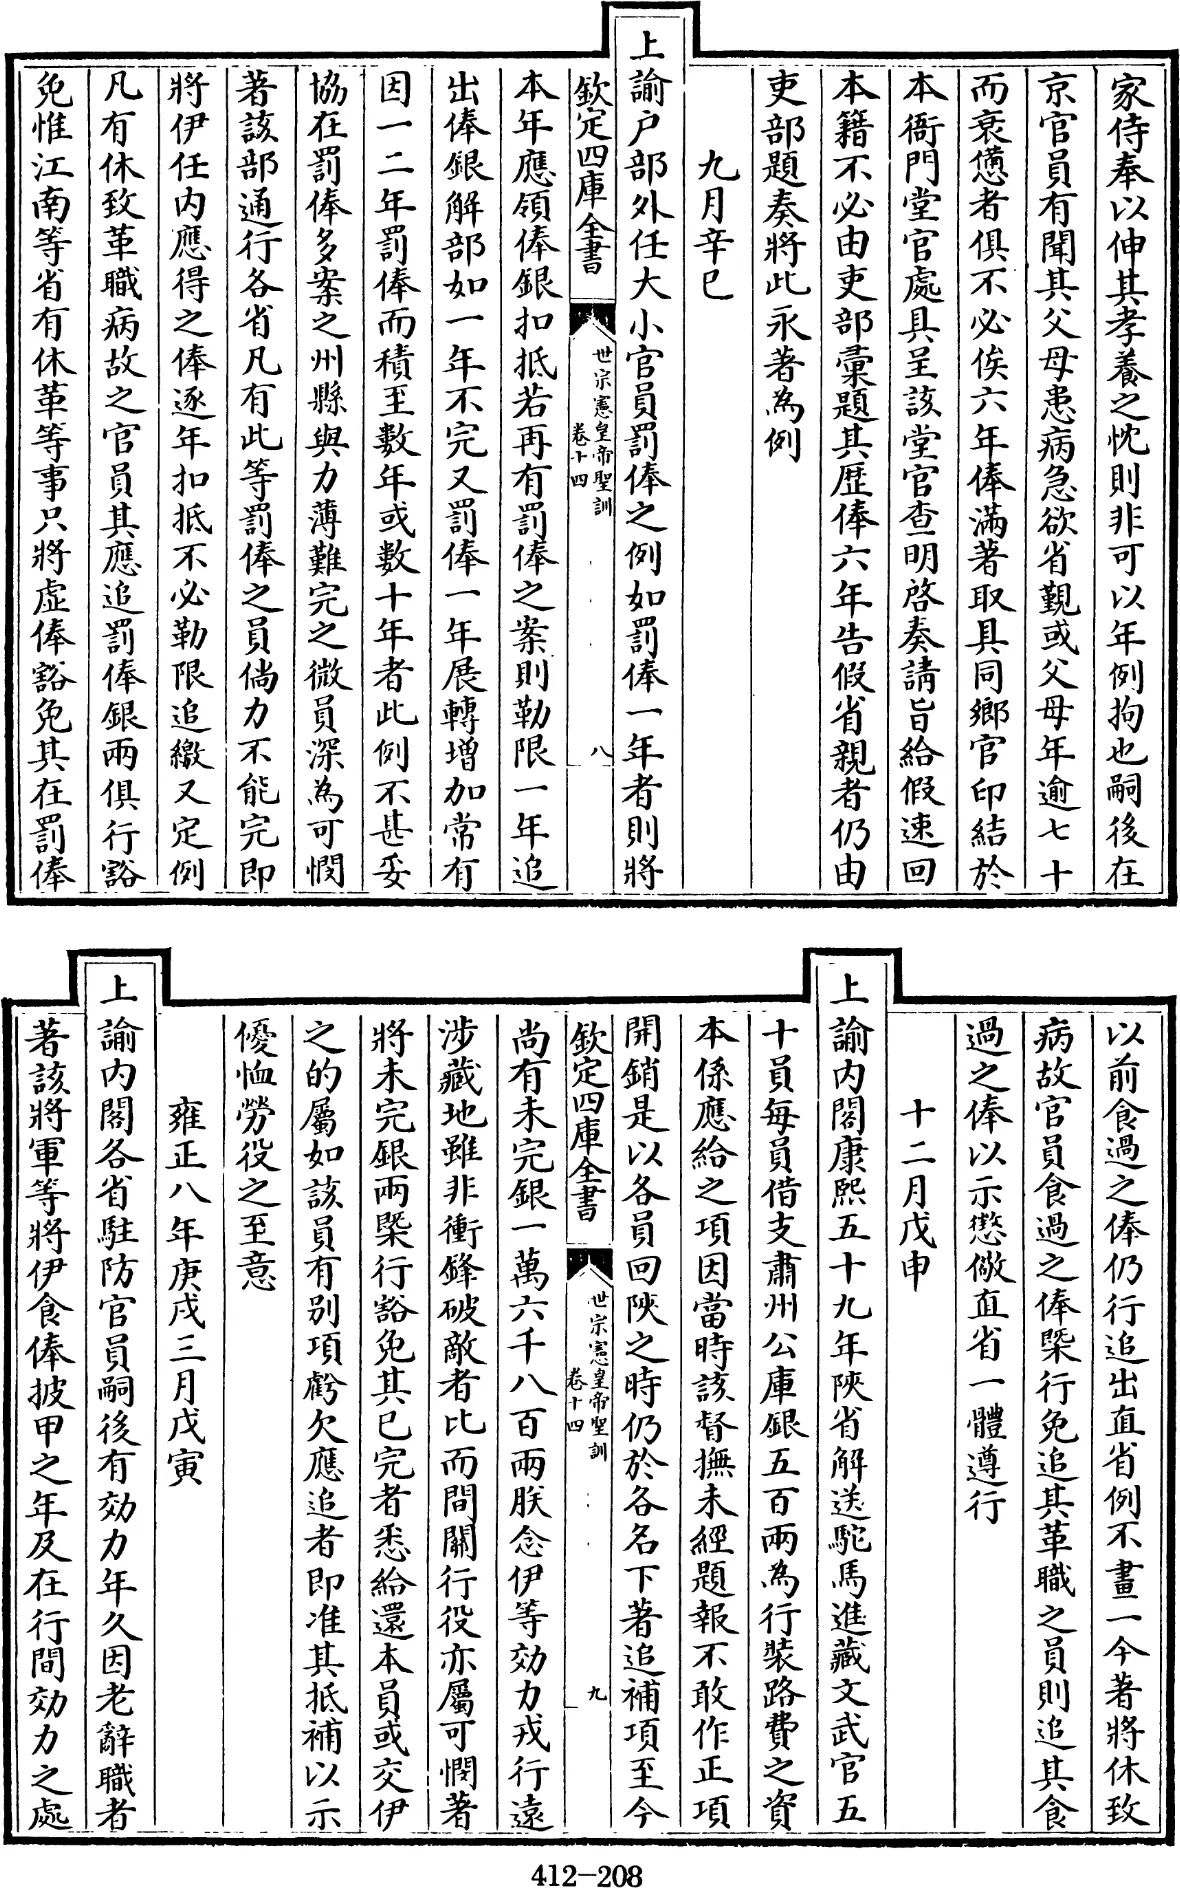 家侍奉以伸其孝養之忱則非可以年例拘也嗣後在
京官員有聞其父母患病急欲省覲或父母年逾七十
而衰憊者俱不必俟六年俸滿著取具同鄉官印結於
本衙門堂官處具呈該堂官查明啓奏請旨給假速回
本籍不必由吏部彙題其歷俸六年告假省親者仍由
吏部題奏將此永著為例
九月辛巳
上諭户部外任大小官員罰俸之例如罰俸一年者則將
欽定四庫全書
世宗憲皇帝聖訓
卷十四
八
本年應領俸銀扣抵若再有罰俸之案則勒限一年追
出俸銀解部如一年不完又罰俸一年展轉增加常有
因一二年罰俸而積至數年或數十年者此例不甚妥
協在罰俸多案之州縣與力薄難完之微員深為可憫
著該部通行各省凡有此等罰俸之員倘力不能完即
將伊任内應得之俸逐年扣抵不必勒限追繳又定例
凡有休致革職病故之官員其應追罰俸銀兩俱行豁
免惟江南等省有休革等事只將虚俸豁免其在罰俸
以前食過之俸仍行追出直省例不畫一今著將休致
病故官員食過之俸槩行免追其革職之員則追其食
過之俸以示懲儆直省一體遵行
十二月戊申
上諭内閣康熙五十九年陝省解送駝馬進藏文武官五
十員每員借支肅州公庫銀五百兩為行裝路費之資
本係應給之項因當時該督撫未經題報不敢作正項
開銷是以各員回陝之時仍於各名下著追補項至今
欽定四庫全書
世宗憲皇帝聖訓
卷十四
九
尚有未完銀一萬六千八百兩朕念伊等効力戎行遠
涉藏地雖非衝鋒破敵者比而間關行役亦屬可憫著
將未完銀兩槩行豁免其已完者悉給還本員或交伊
之的屬如該員有别項虧欠應追者即准其抵補以示
優恤勞役之至意
雍正八年庚戌三月戊寅
上諭内閣各省駐防官員嗣後有効力年久因老辭職者
著該將軍等將伊食俸披甲之年及在行間効力之處
412-208